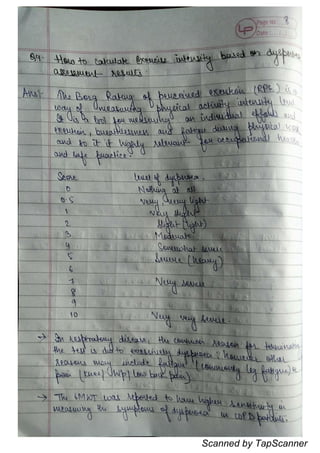 Page no: 8
Date:
Q4. How to calculate Exercise intensity based on dyspnoea
assessment results
Ans:- The Borg Rating of perceived exertion (RPE) is a
way of measuring physical activity intensity level
It is a tool for measuring an individual effort and
exertion, breathlessness and fatigue during physical work
and so it is highly relevant for occupational health
and safe practice.
Score level of dyspnoea.
0 Nothing at all
0.5 very very light
1 very slight
2 slight (light)
3 Moderate
4 Somewhat severe
5 Severe (heavy)
6
7 Very severe
8
9
10 Very very severe.
→ In respiratory disease, the common reason for
the test is due to dyspnoea. However other
reasons may include fatigue (commonly leg fatigue) &
pain (knee / hip / low back pain).
→ The 6MWT was reported to have higher sensitivity in
measuring the symptoms of dyspnoea in COPD patients.
Scanned by TapScanner